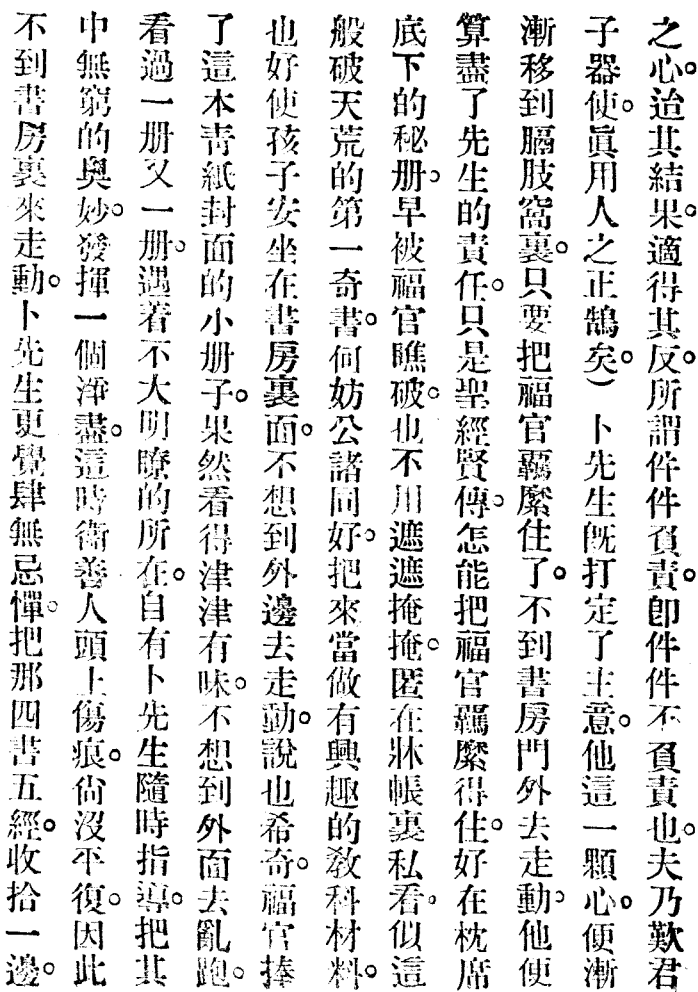 之心。迨其結果。適得其反。所謂件件負責。卽件件不負責也。夫乃歎君
子器使。眞用人之正鵠矣。）卜先生旣打定了主意。他這一顆心。便漸
漸移到膈肢窩裏。只要把福官羈縻住了。不到書房門外去走動。他便
算盡了先生的責任。只是聖經賢傳。怎能把福官羈縻得住。好在枕席
底下的秘册。早被福官瞧破。也不用遮遮掩掩。匿在牀帳裏私看。似這
般破天荒的第一奇書。何妨公諸同好。把來當做有興趣的敎科材料。
也好使孩子安坐在書房裏面。不想到外邊去走動。說也希奇。福官捧
了這本靑紙封面的小册子。果然看得津津有味。不想到外面去亂跑。
看過一册又一册。遇着不大明瞭的所在。自有卜先生隨時指導。把其
中無窮的奧妙。發揮一個淨盡。這時衞善人頭上傷痕。尙沒平復。因此
不到書房裏來走動。卜先生更覺肆無忌憚。把那四書五經。收拾一邊。